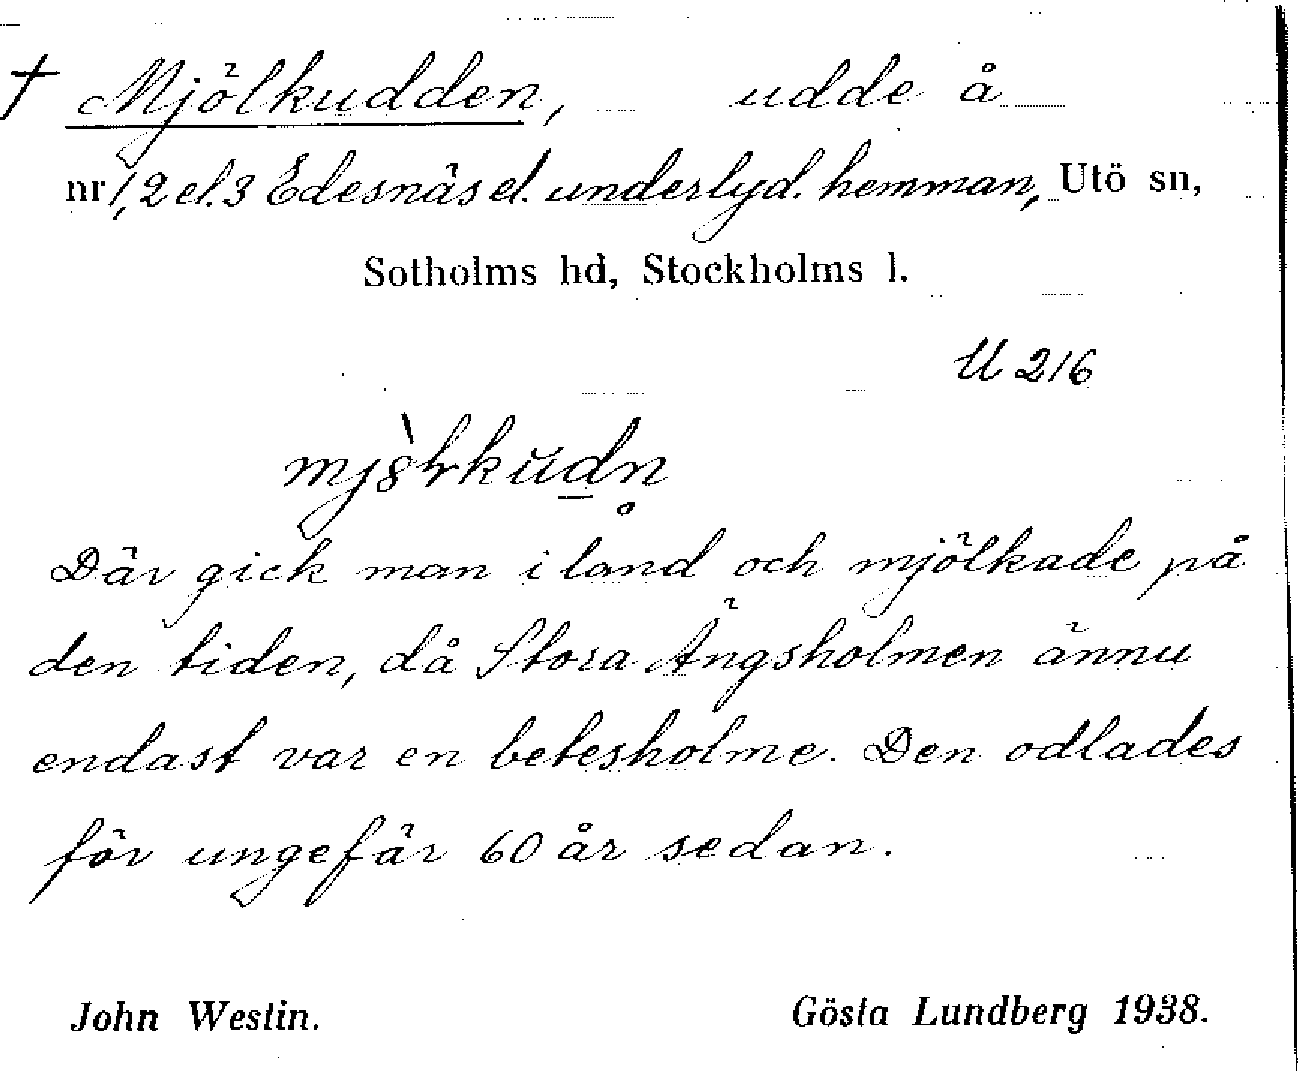 † Mjölkudden, udde å
nr 1, 2 el. 3 Edesnäs el. underlyd. hemman, Utö sn,
Sotholms hd, Stockholms l.
U 216
Där gick man i land och mjölkade på
den tiden, då Stora Ängsholmen ännu
endast var en betesholme. Den odlades
för ungefär 60 år sedan.
John Westin. Gösta Lundberg 1938.